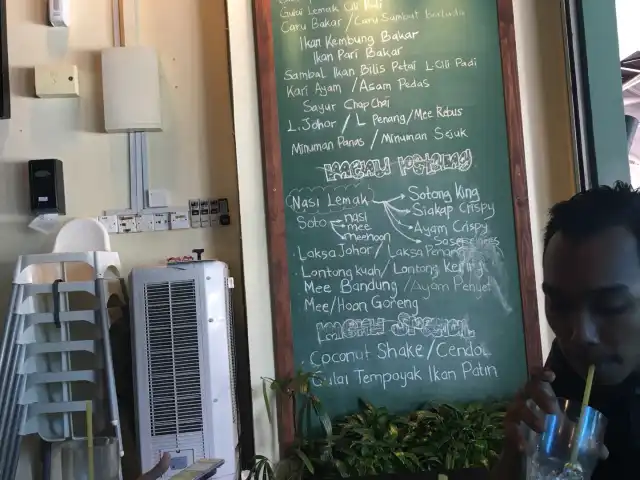 Gulai Lemak Cili Padi
Caru Bakar / Caru Sumbat berlada
Ikan Kembung Bakar
Ikan Pari Bakar
Sambal Ikan Bilis Petai L.Cili Padi
Kari Ayam / Asam Pedas
Sayur Chap Chai
L. Johor / L Penang / Mee Rebus
Minuman Panas / Minuman Sejuk
menu petang
Nasi Lemak
Sotong King
Siakap Crispy
Ayam Crispy
Soto
nasi
mee
meehoon
Laksa Johor / Laksa Penang
Lontong kuah / Lontong Kering
Mee Bandung / Ayam Penyet
Mee/Hoon Goreng
menu Special
Coconut Shake / Cendol
Gulai Tempoyak Ikan Patin